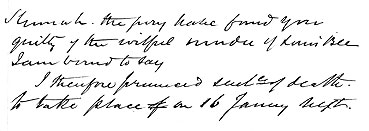 Hannah. the jury have found you
guilty of the wilful murder of Louis Bee
I am bound to say
I therefore pronounced sentce of death.
to take place on 16 Janury next.